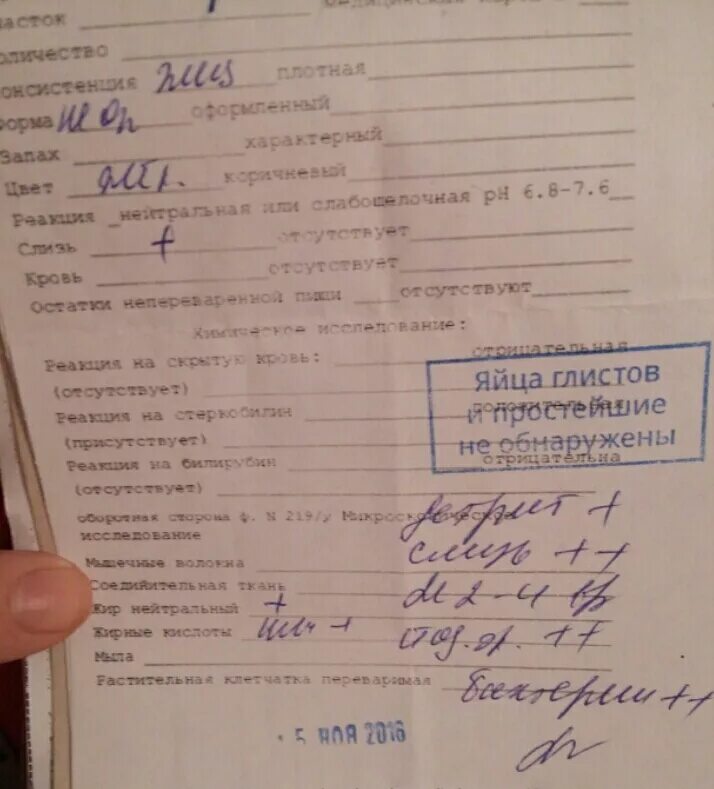 асток
оличество
онсистенция жид плотная
орма не оф оформленный
Запах характерный
Цвет жёлт. коричневый
Реакция _нейтральная или слабощелочная рН 6.8-7.6
Слизь + отсутствует
Кровь отсутствует
Остатки непереваренной пищи отсутствуют
Химическое исследование:
Реакция на скрытую кровь: отрицательная
(отсутствует)
Реакция на стеркобилин положительная
(присутствует)
Реакция на билирубин отрицательна
(отсутствует)
Яйца глистов
и простейшие
не обнаружены
оборотная сторона ф. N 219/у Микроскопическое
исследование
детрит +
Мышечные волокна слизь ++
Соединительная ткань 2-4
Жир нейтральный +
Жирные кислоты + ++
Мыла
Растительная клетчатка переваримая бактерии ++
5 НОЯ 2016